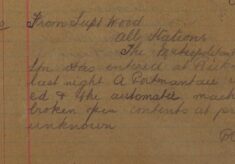 From Supt Wood
All Stations
The Metropolitan
Stn was entered at Rick
last night A Portmanteau
ed & the automatic mach
broken open contents at pr
unknown